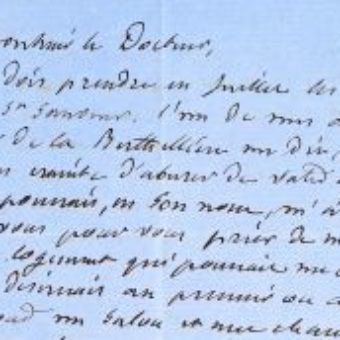 le Docteur,
dois prendre en Juillet les
St Sauveur. l'un de mes a
de la Berthellière me dit,
crainte d'abuser de votre
pourrais, en son nom, m'a
vous pour vous prier de m
logement qui pourrait me c
désirerais au premier ou
un salon et une cham